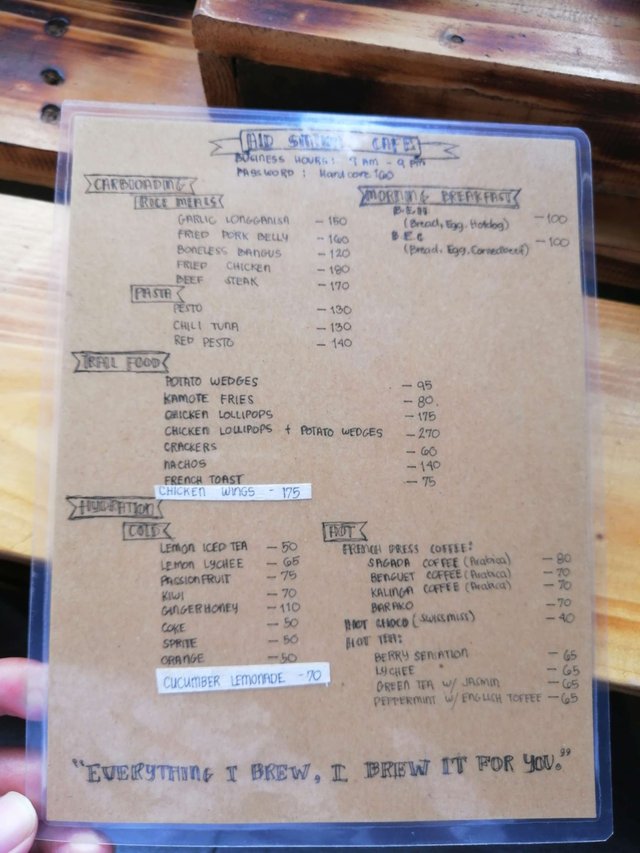 CAFE
BUSINESS HOURS: 9 AM - 9 PM
PASSWORD : Hardcore.
CARBLOADING
RICE MEALS
GARLIC LONGGANISA - 150
FRIED PORK BELLY - 160
BONELESS BANGUS - 120
FRIED CHICKEN - 180
BEEF STEAK - 170
PASTA
PESTO - 130
CHILI TUNA - 130
RED PESTO - 140
MORNING BREAKFAST
B.E.H - 100
(Bread, Egg, Hotdog)
B.E.C - 100
(Bread, Egg, Cornedbeef)
TRAIL FOOD
POTATO WEDGES - 95
KAMOTE FRIES - 80
CHICKEN LOLLIPOPS - 175
CHICKEN LOLLIPOPS + POTATO WEDGES - 270
CRACKERS - 60
NACHOS - 140
FRENCH TOAST - 75
CHICKEN WINGS - 175
HYDRATION
COLD
LEMON ICED TEA - 50
LEMON LYCHEE - 65
PASSIONFRUIT - 75
KIWI - 70
GINGERHONEY - 110
COKE - 50
SPRITE - 50
ORANGE - 50
CUCUMBER LEMONADE - 70
HOT
FRENCH PRESS COFFEE:
SAGADA COFFEE (Arabica) - 80
BENGUET COFFEE (Arabica) - 70
KALINGA COFFEE (Arabica) - 70
BARAKO - 70
HOT CHOCO (SWISSMISS) - 40
HOT TEA:
BERRY SENSATION - 65
LYCHEE " - 65
GREEN TEA W/ JASMIN - 65
PEPPERMINT W/ ENGLISH TOFFEE - 65
"EVERYTHING I BREW, I BREW IT FOR YOU."